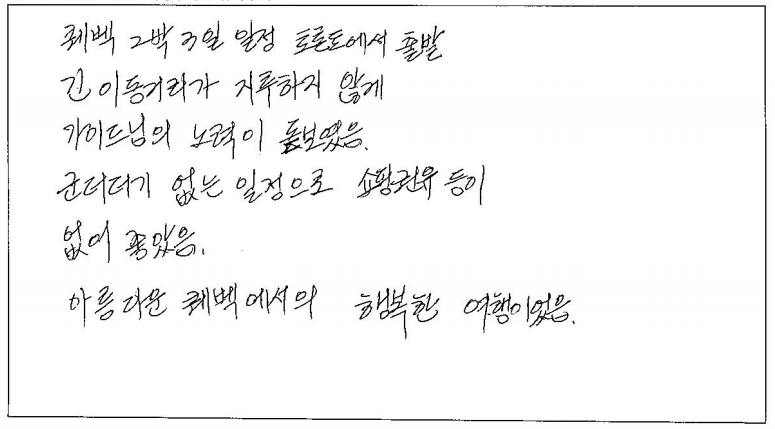 퀘벡 2박 3일 일정 토론토에서 출발
긴 이동거리가 지루하지 않게
가이드님의 노력이 돋보였음.
군더더기 없는 일정으로 쇼핑권유 등이
없어 좋았음.
아름다운 퀘벡에서의 행복한 여행이었음.